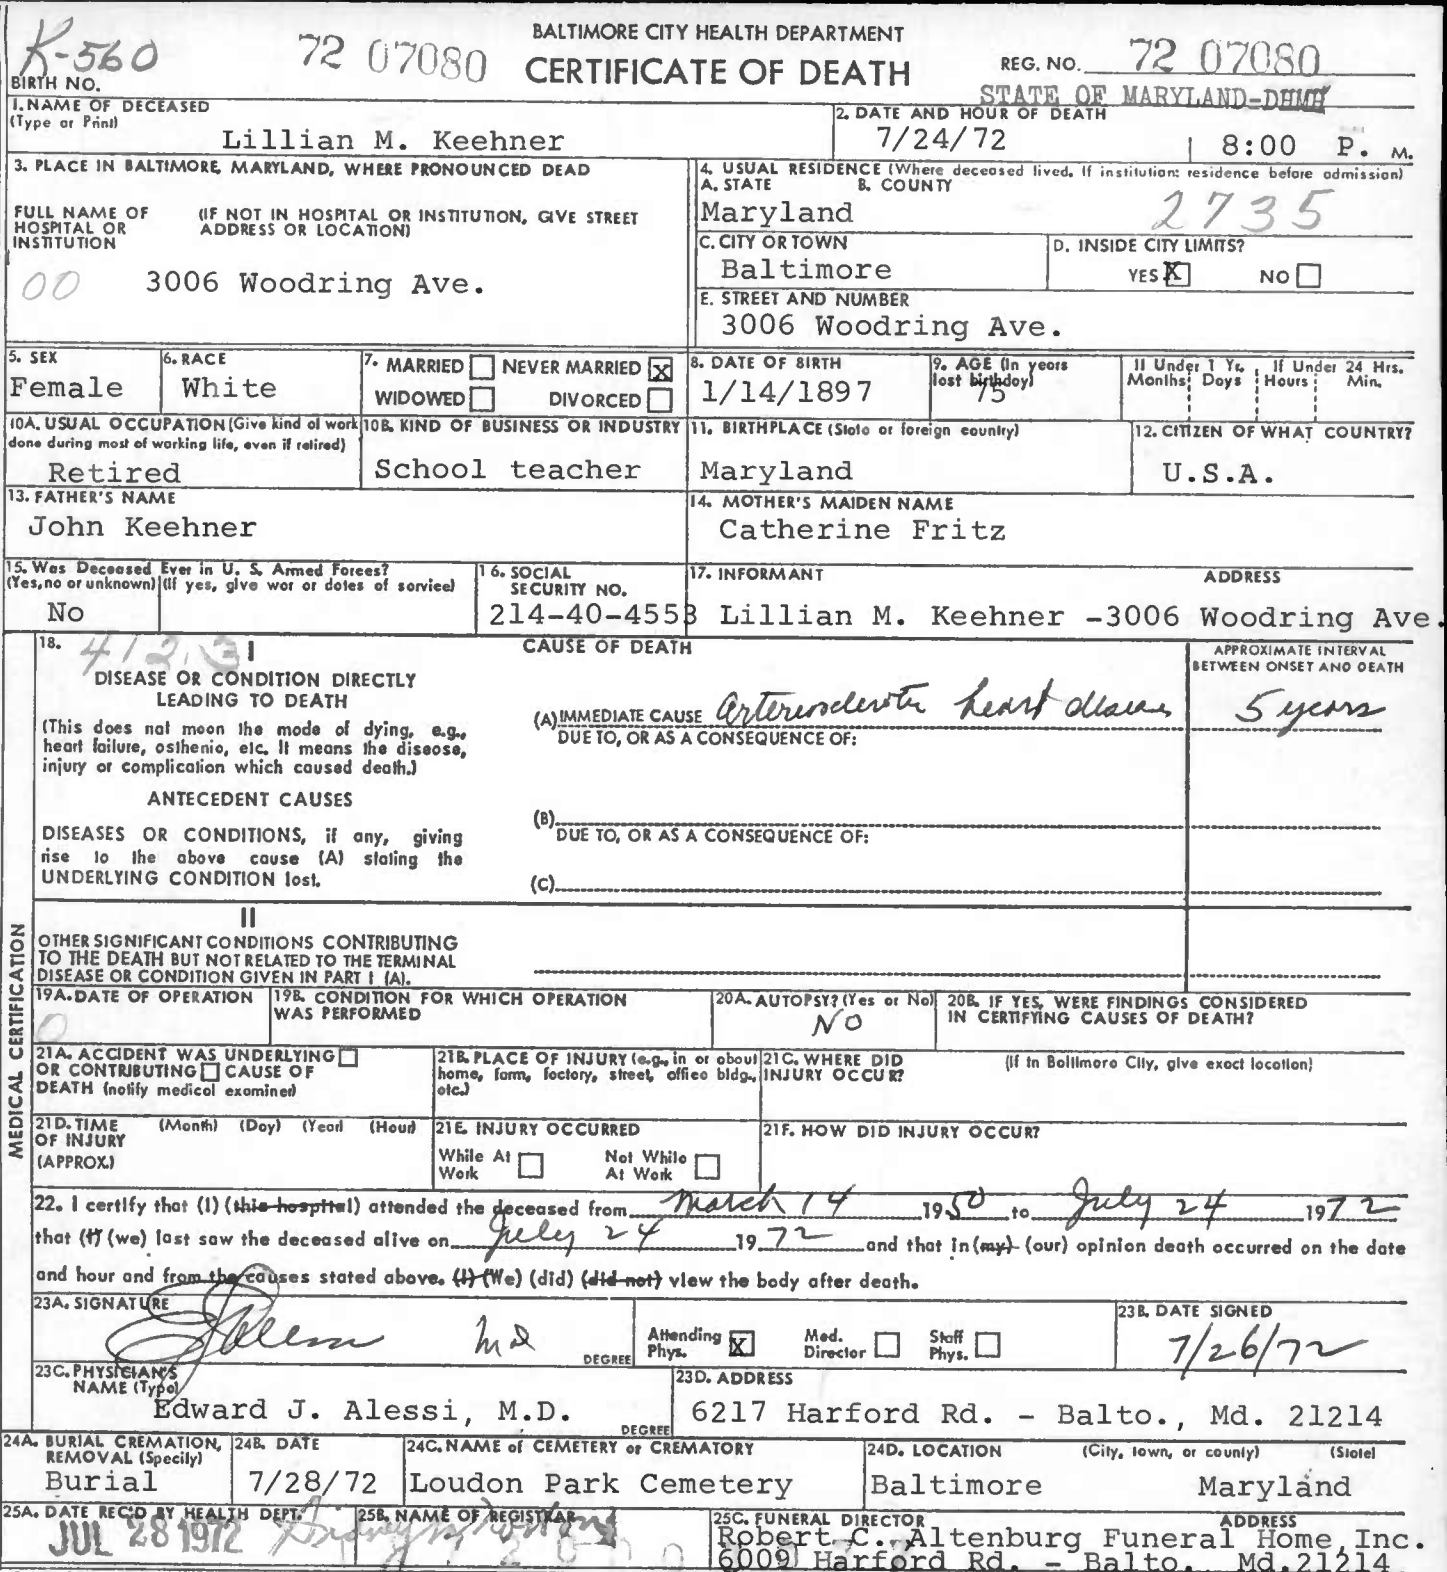 K-560
72 07080
BALTIMORE CITY HEALTH DEPARTMENT
CERTIFICATE OF DEATH
REG. NO. 72 07080
STATE OF MARYLAND-DHMH
BIRTH NO.
1. NAME OF DECEASED
(Type or Print)
Lillian M. Keehner
2. DATE AND HOUR OF DEATH
7/24/72 8:00 P. M.
3. PLACE IN BALTIMORE, MARYLAND, WHERE PRONOUNCED DEAD
FULL NAME OF HOSPITAL OR INSTITUTION
(IF NOT IN HOSPITAL OR INSTITUTION, GIVE STREET ADDRESS OR LOCATION)
00 3006 Woodring Ave.
4. USUAL RESIDENCE (Where deceased lived. If institution: residence before admission)
A. STATE B. COUNTY
Maryland 2735
C. CITY OR TOWN
Baltimore
D. INSIDE CITY LIMITS?
YES X NO
E. STREET AND NUMBER
3006 Woodring Ave.
5. SEX
Female
6. RACE
White
7. MARRIED NEVER MARRIED X
WIDOWED DIVORCED
8. DATE OF BIRTH
1/14/1897
9. AGE (In years last birthday)
75
If Under 1 Yr. If Under 24 Hrs.
Months Days Hours Min.
10A. USUAL OCCUPATION (Give kind of work done during most of working life, even if retired)
Retired
10B. KIND OF BUSINESS OR INDUSTRY
School teacher
11. BIRTHPLACE (State or foreign country)
Maryland
12. CITIZEN OF WHAT COUNTRY?
U.S.A.
13. FATHER'S NAME
John Keehner
14. MOTHER'S MAIDEN NAME
Catherine Fritz
15. Was Deceased Ever in U. S. Armed Forces?
(Yes, no or unknown) (If yes, give war or dates of service)
No
16. SOCIAL SECURITY NO.
214-40-4553
17. INFORMANT ADDRESS
Lillian M. Keehner -3006 Woodring Ave.
MEDICAL CERTIFICATION
18. 412.3 I
CAUSE OF DEATH
APPROXIMATE INTERVAL BETWEEN ONSET AND DEATH
DISEASE OR CONDITION DIRECTLY LEADING TO DEATH
(This does not mean the mode of dying, e.g., heart failure, asthenia, etc. It means the disease, injury or complication which caused death.)
(A) IMMEDIATE CAUSE Arteriosclerotic heart disease 5 years
DUE TO, OR AS A CONSEQUENCE OF:
ANTECEDENT CAUSES
DISEASES OR CONDITIONS, if any, giving rise to the above cause (A) stating the UNDERLYING CONDITION last.
(B)
DUE TO, OR AS A CONSEQUENCE OF:
(C)
II
OTHER SIGNIFICANT CONDITIONS CONTRIBUTING TO THE DEATH BUT NOT RELATED TO THE TERMINAL DISEASE OR CONDITION GIVEN IN PART I (A).
19A. DATE OF OPERATION
0
19B. CONDITION FOR WHICH OPERATION WAS PERFORMED
20A. AUTOPSY? (Yes or No)
NO
20B. IF YES, WERE FINDINGS CONSIDERED IN CERTIFYING CAUSES OF DEATH?
21A. ACCIDENT WAS UNDERLYING OR CONTRIBUTING CAUSE OF DEATH (notify medical examiner)
21B. PLACE OF INJURY (e.g., in or about home, farm, factory, street, office bldg., etc.)
21C. WHERE DID INJURY OCCUR?
(If in Baltimore City, give exact location)
21D. TIME OF INJURY (APPROX.) (Month) (Day) (Year) (Hour)
21E. INJURY OCCURRED
While At Work Not While At Work
21F. HOW DID INJURY OCCUR?
22. I certify that (I) (this hospital) attended the deceased from March 14 1950 to July 24 1972
that (I) (we) last saw the deceased alive on July 24 1972 and that in (my) (our) opinion death occurred on the date
and hour and from the causes stated above. (I) (We) (did) (did not) view the body after death.
23A. SIGNATURE
EJAlessi MD
DEGREE
Attending Phys. X Med. Director Staff Phys.
23B. DATE SIGNED
7/26/72
23C. PHYSICIAN'S NAME (Type)
Edward J. Alessi, M.D.
DEGREE
23D. ADDRESS
6217 Harford Rd. - Balto., Md. 21214
24A. BURIAL CREMATION, REMOVAL (Specify)
Burial
24B. DATE
7/28/72
24C. NAME of CEMETERY or CREMATORY
Loudon Park Cemetery
24D. LOCATION (City, town, or county) (State)
Baltimore Maryland
25A. DATE REC'D BY HEALTH DEPT.
JUL 28 1972
25B. NAME OF REGISTRAR
25C. FUNERAL DIRECTOR ADDRESS
Robert C. Altenburg Funeral Home, Inc.
6009 Harford Rd. - Balto. Md. 21214